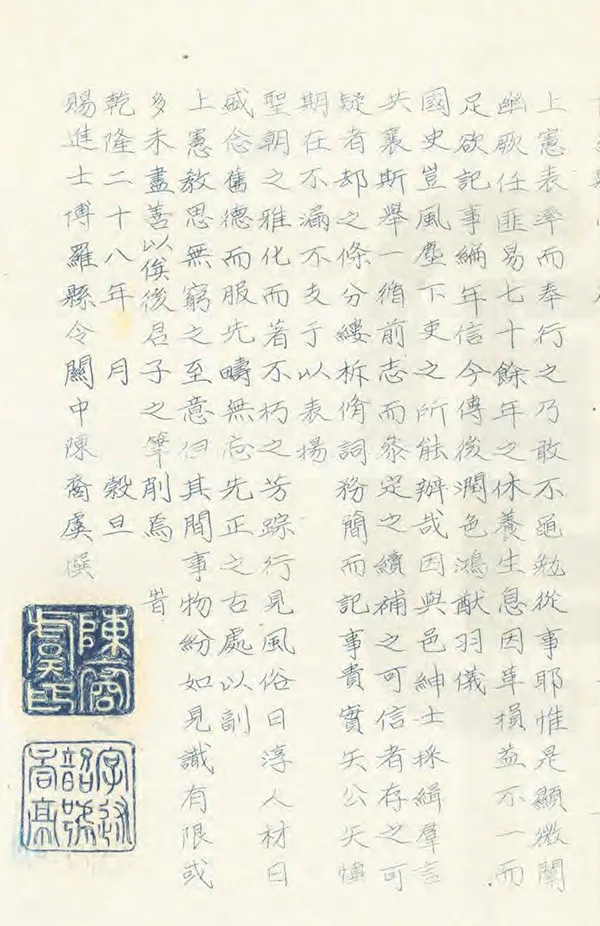 上憲表率而奉行之乃敢不黽勉從事耶惟是顯微闡
幽厥任匪易七十餘年之休養生息因革損益不一而
足欲記事編年信今傳後潤色鴻猷羽儀
國史豈風塵下吏之所能辦哉因與邑紳士採緝羣言
共襄斯舉一循前志而叅定之續補之可信者存之可
疑者却之條分縷柝脩詞務簡而記事貴實矢公矢慎
期在不漏不支于以表揚
聖朝之雅化而著不朽之芳踪行見風俗日淳人材日
盛念舊德而服先疇無忘先正之古處以副
上憲教思無窮之至意但其間事物紛如見識有限或
多未盡善以俟後君子之筆削焉 旹
乾隆二十八年 月 穀旦
賜進士博羅縣令關中陳裔虞撰
陳裔虞印